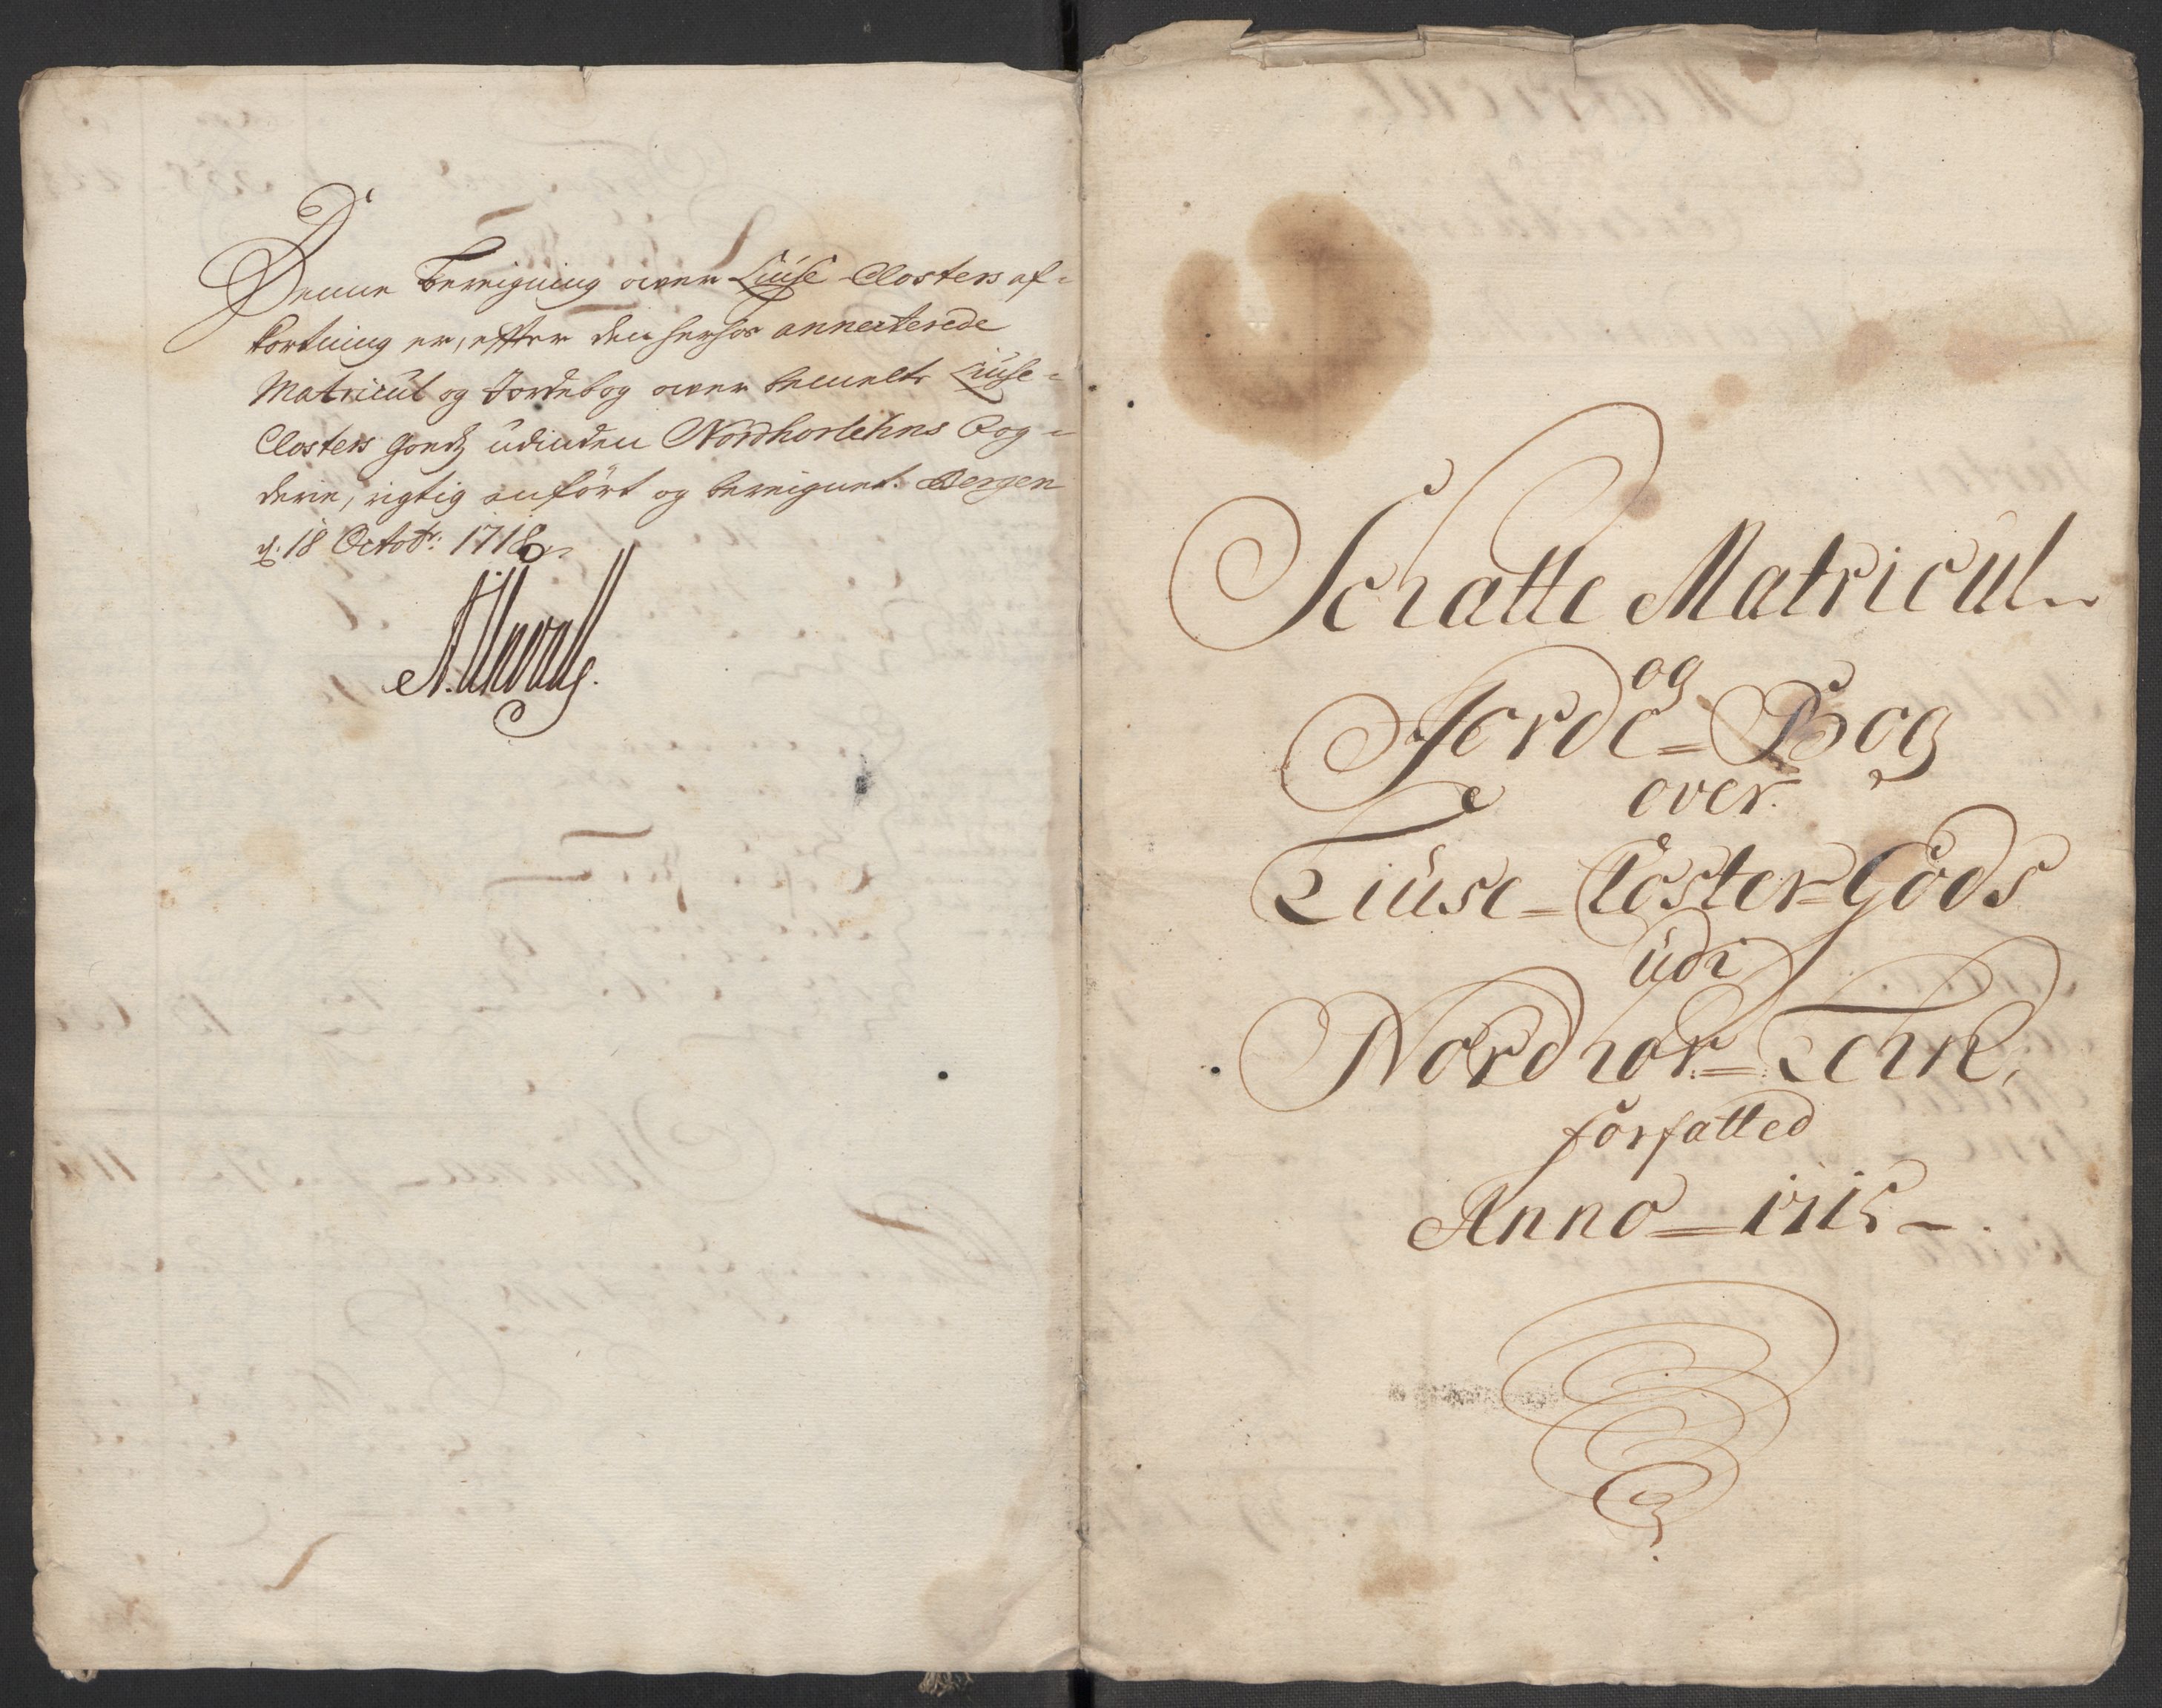 Denne Bereigning over Liuse Closters af-
kortning er, effter den herhos annecterede
Matricul og Jordebog over bemelte Liuse-
Closters Goedz udinden Nordhorlehns Fog-
derie, rigtig anført og bereignet. Bergen
d. 18 Octobr: 1718
Schatte Matricul
og
Jorde=Bog
over
Liuse=Closter=Gods
udi
Nordhor=Lehn,
forfatted
Anno=1715